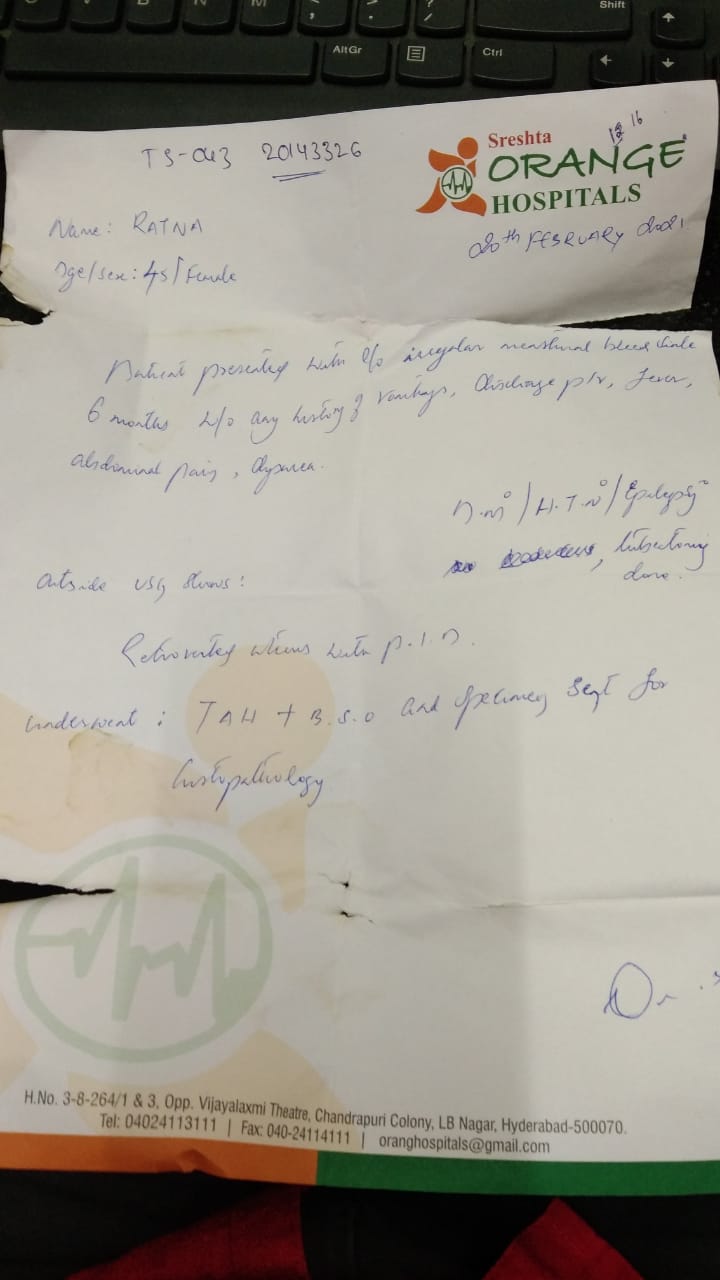 Shift
AltGr
Ctrl
TS-043 20143326
16
Sreshta
ORANGE
HOSPITALS
Name: RATNA
20th FEBRUARY 2021
Age/sex: 45/Female
Patient presented with c/o irregular menstrual bleed since
6 months h/o any history of Discharge p/v, Fever,
abdominal pain,
D.M°/H.T.N°/Epilepsy°
, tubectomy
done.
Outside USG shows:
Retroverted uterus with P.I.D.
Underwent: TAH + B.S.O and specimen sent for
histopathology
Dr.
H.No. 3-8-264/1 & 3, Opp. Vijayalaxmi Theatre, Chandrapuri Colony, LB Nagar, Hyderabad-500070.
Tel: 04024113111 | Fax: 040-24114111 | oranghospitals@gmail.com